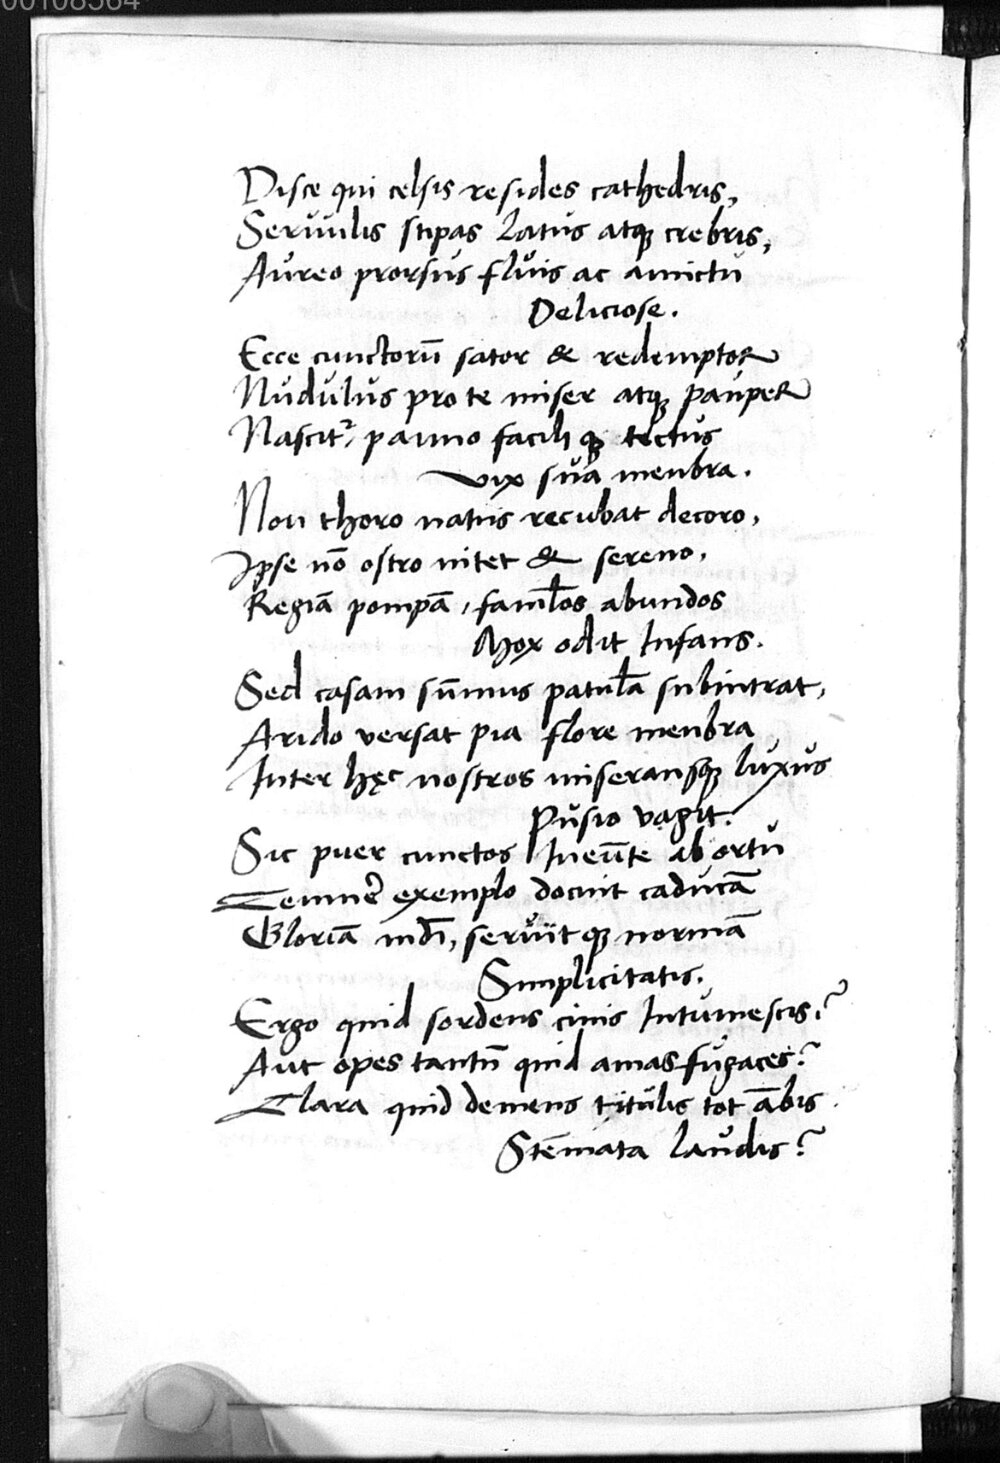 00108564
Disce qui celsis resides cathedris,
Seruulis stipas latus atqꝫ crebris,
Aureo prorsus fluis ac amictu
Deliciose.
Ecce cunctorū sator & redemptor
Nudulus pro te miser atqꝫ pauper
Nascit᷑, panno facili qꝫ tectus
Vix sua menbra.
Non thoro natus recubat decoro,
Ipse nō ostro nitet & sereno,
Regiā pompā, famłos abundos
Mox odit Infans.
Sed casam sūmus patułā subintrat,
Arido versat pia flore menbra
Inter hęc nostros miseransqꝫ luxus
Pusio vagit.
Sic puer cunctos Ineūte ab ortu
Temner̄ exemplo docuit caducā
Gloriā mdī, seruiitqꝫ normā
Simplicitatis.
Ergo quid sordens cinis Intumescis?
Aut opes tantū quid amas fugaces?
Clara quid demens titulis tot ābis
Stēmata laudis?